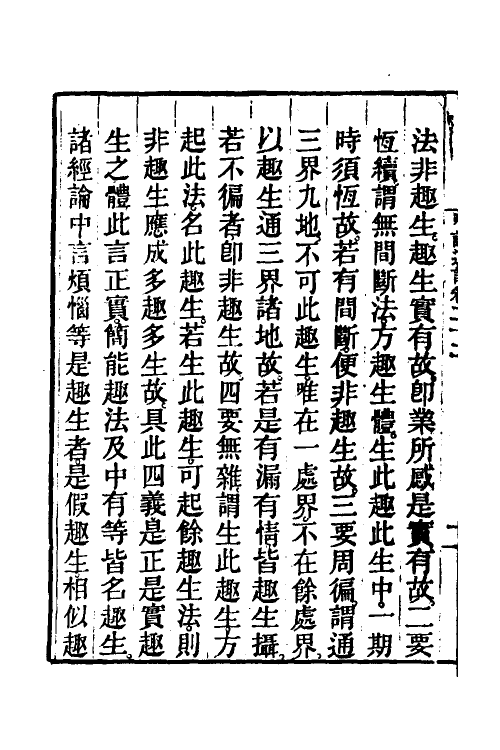 法非趣生。趣生實有故。卽業所感是實有故。二要
恆續。謂無間斷法。方趣生體。生此趣此生中。一期
時須恆故。若有間斷便非趣生故。三要周徧。謂通
三界九地。不可此趣生唯在一處界。不在餘處界。
以趣生通三界諸地故。若是有漏有情皆趣生攝。
若不徧者卽非趣生故。四要無雜。謂生此趣生。方
起此法。名此趣生。若生此趣生。可起餘趣生法。則
非趣生。應成多趣多生故。具此四義是正是實趣
生之體。此言正實。簡能趣法及中有等皆名趣生。
諸經論中言煩惱等是趣生者。是假趣生相似趣